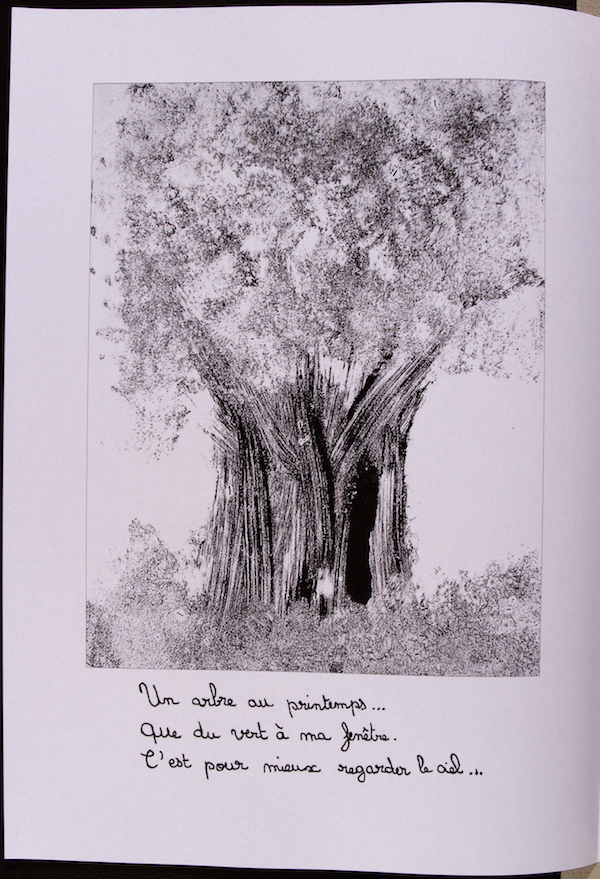 Un arbre au printemps...
Que du vert à ma fenêtre.
C'est pour mieux regarder le ciel...